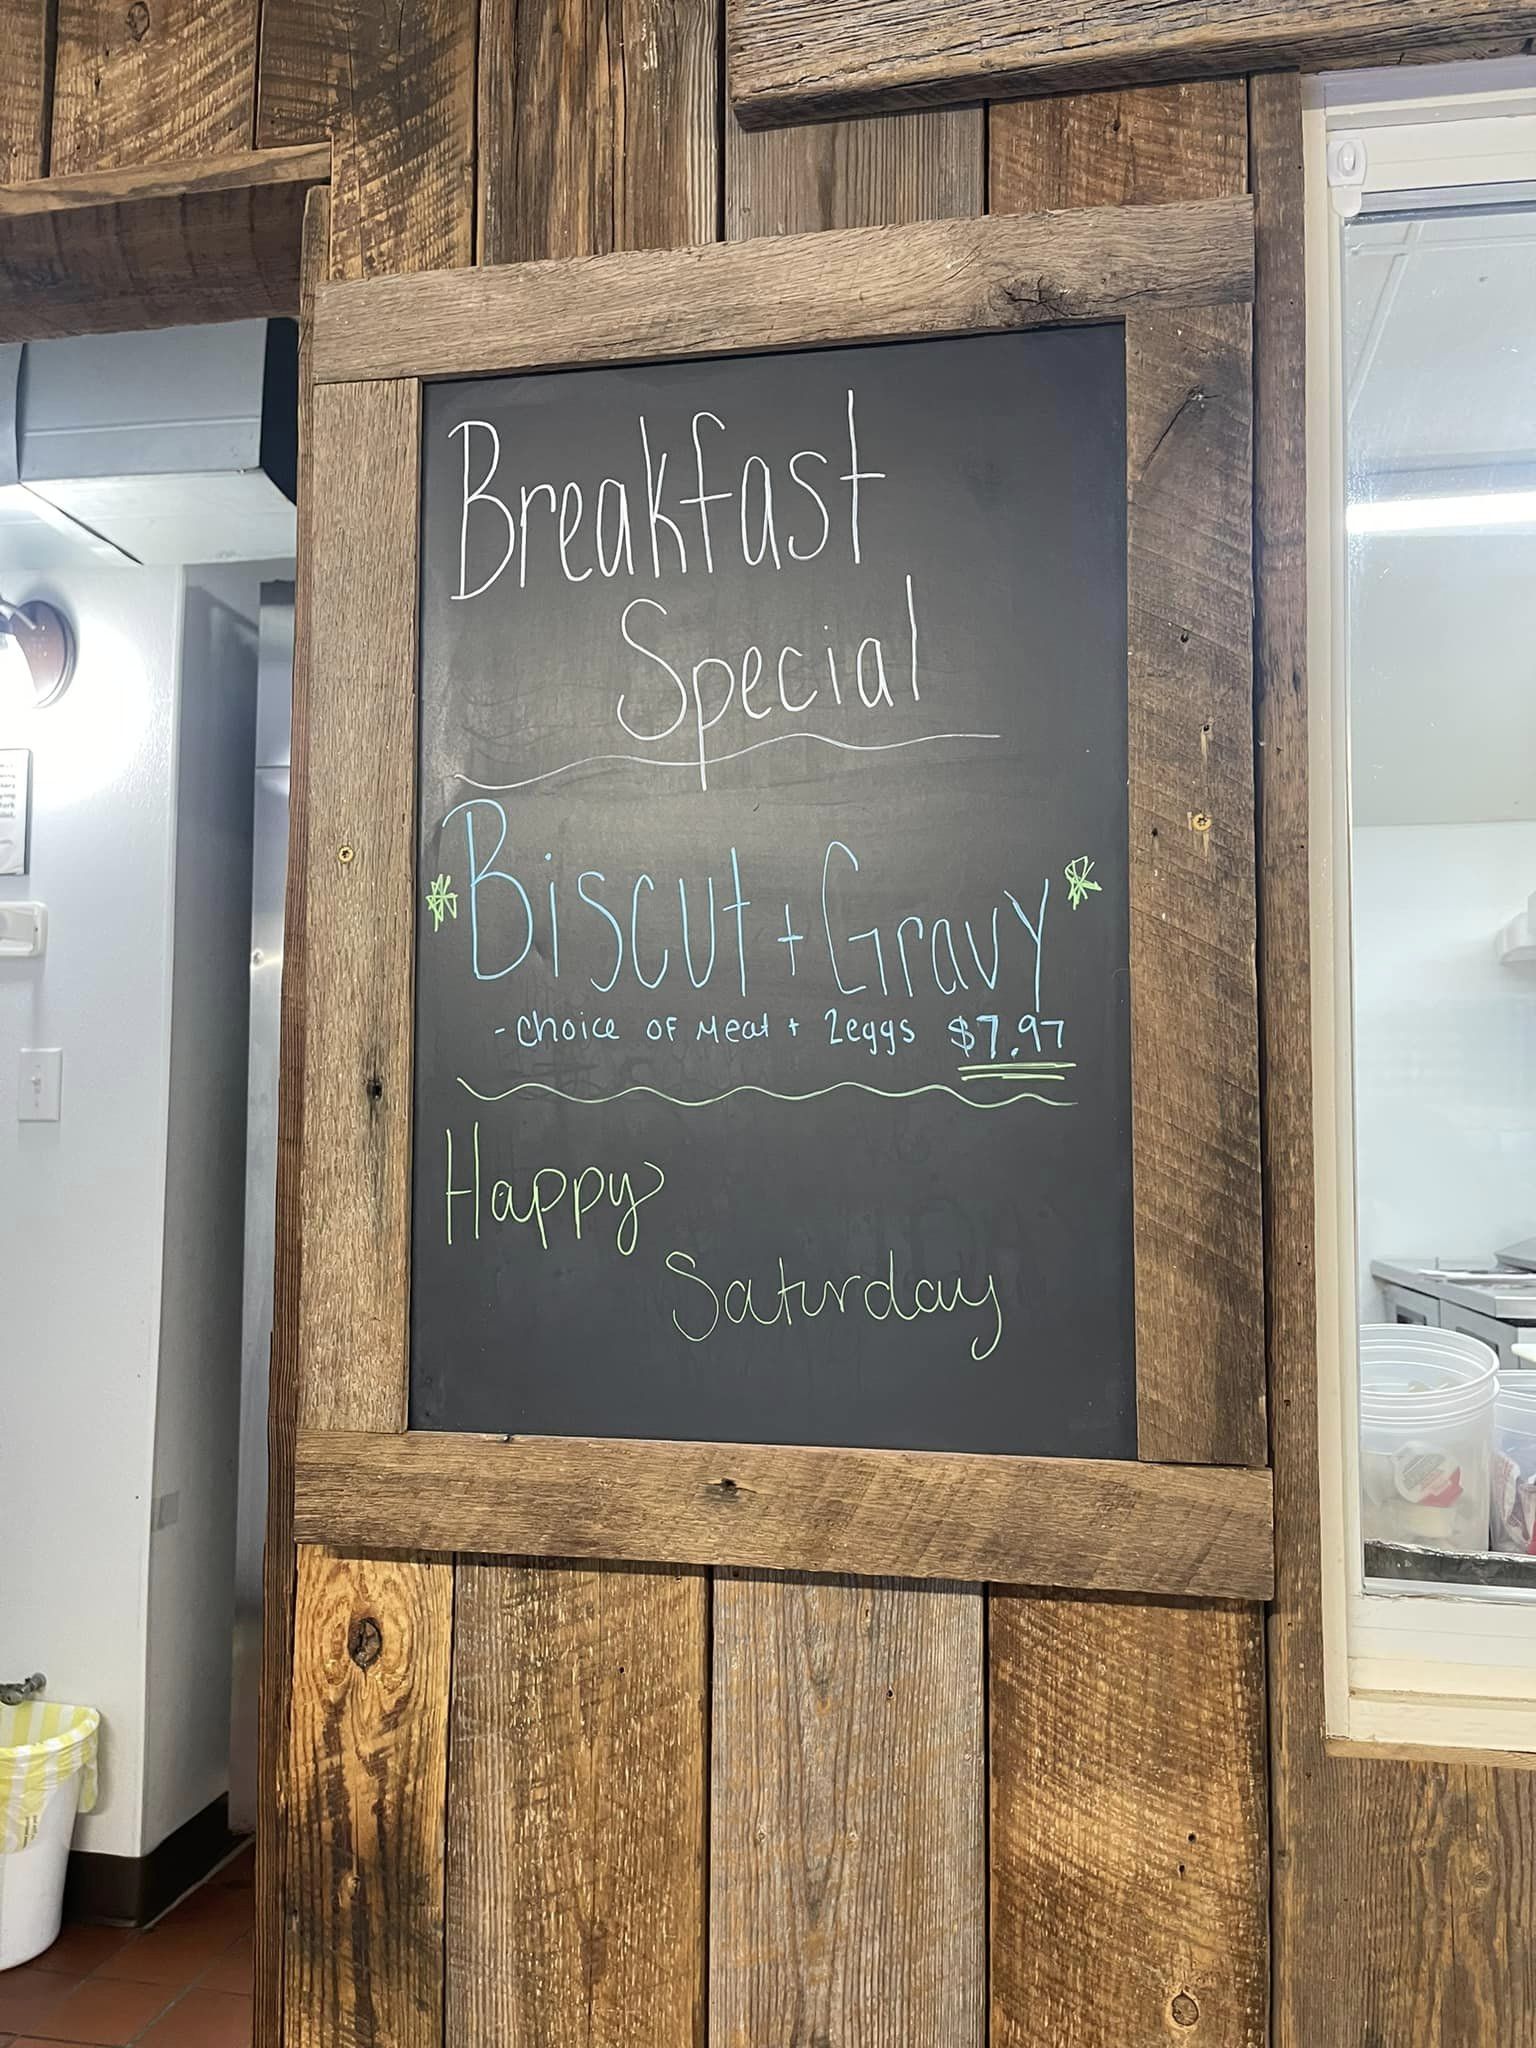 Breakfast
Special
*Biscut + Gravy*
- Choice OF Meat + 2eggs $7.97
Happy
Saturday